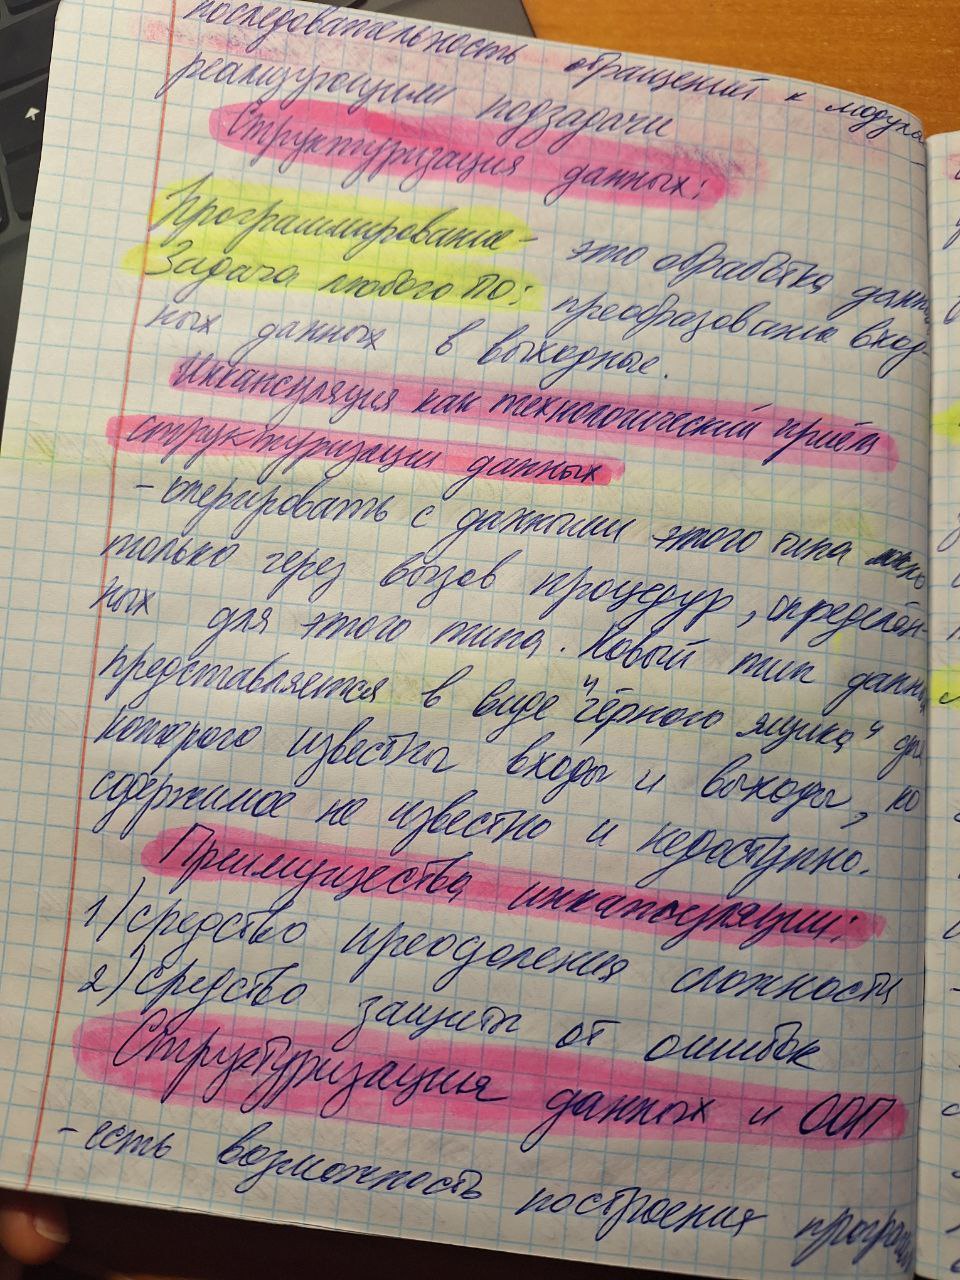 последовательность обращений к модуля
реализующими подзадачи
Структуризация данных:
Программирование - это обработка данных.
Задача любого ПО: преобразование вход-
ных данных в выходные.
Инкапсуляция как технологический приём
структуризации данных
- оперировать с данными этого типа можно
только через вызов процедур, определён-
ных для этого типа. Новый тип данных
представляется в виде "чёрного ящика" для
которого известны входы и выходы, но
содержимое не известно и недоступно.
Преимущества инкапсуляции:
1) средство преодоления сложности
2) средство защиты от ошибок
Структуризация данных и ООП
- есть возможность построения програм